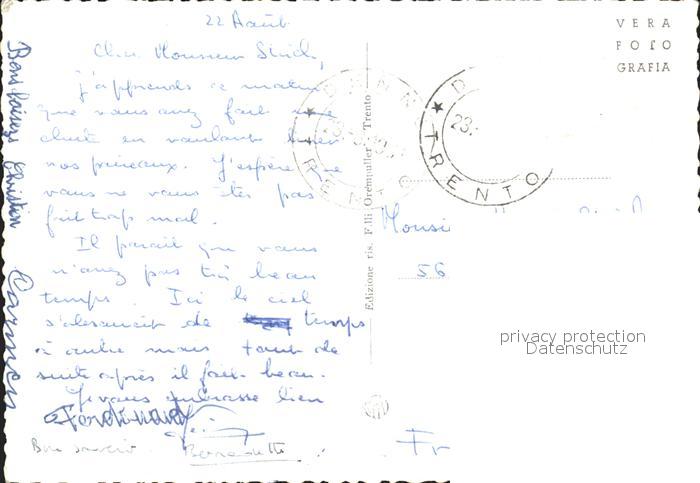 22 Août
Cher Monsieur
j'apprends ce matin
que vous avez fait une
chute en voulant
nos J'espère que
vous ne vous êtes pas
fait trop mal.
Il paraît que vous
n'avez pas très beau
temps. Ici le ciel
s'obscurcit de temps
à autre mais tout de
suite après il fait beau.
Je vous embrasse bien
Ferdinand
Bon souvenir Bernadette
Bons baisers Christian Carmen
Edizione ris. F.lli Orempuller Trento
VERA
FOTO
GRAFIA
TRENTO
23.
TRENTO
Monsi
56
Fr
privacy protection
Datenschutz